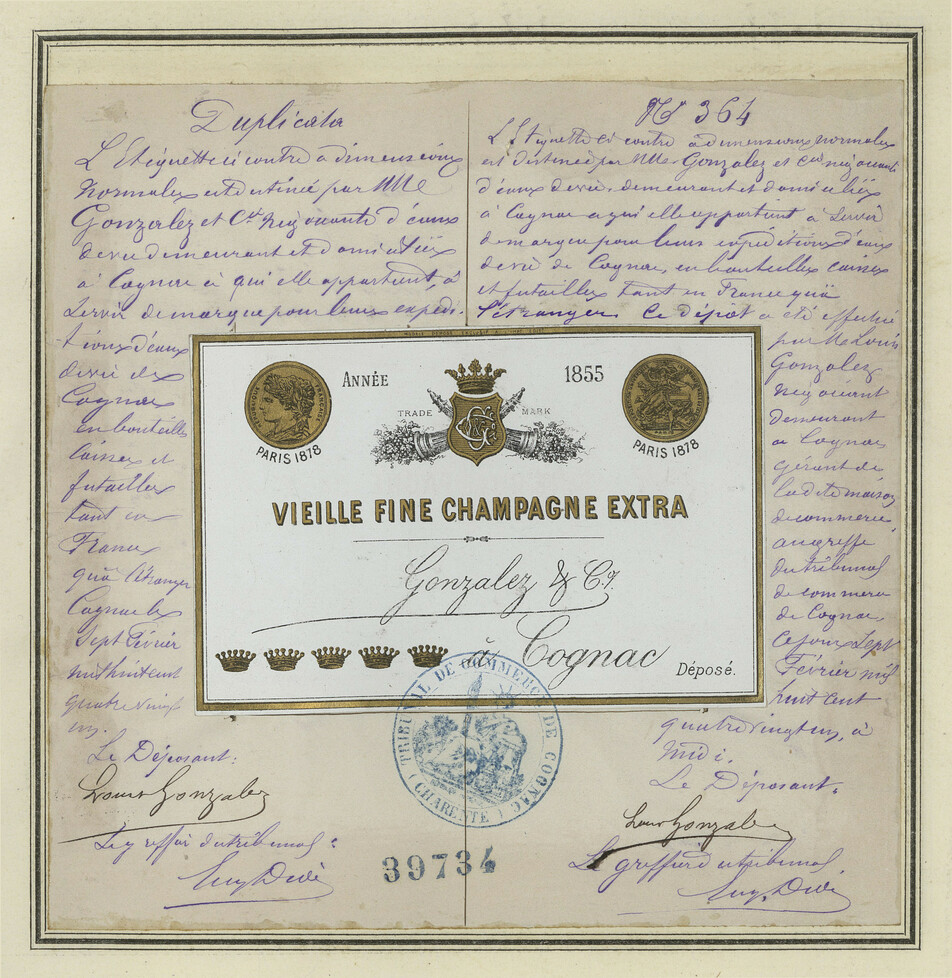 Duplicata
L'Etiquette ci contre a dimensions
normales est destinée par MM.
Gonzalez et Cie Négociants d'eaux
de vie demeurant et domiciliés
à Cognac à qui elle appartient, à
servir de marque pour leurs expedi-
tions d'eaux
de vie de
Cognac
en bouteilles
caisses et
futailles
tant en
France
qu'à l'étranger
Cognac le
Sept Février
mil huit cent
quatre vingt
un.
Le Déposant:
Louis Gonzalez
Le greffier du tribunal:
No 364
L'Etiquette ci contre a dimensions normales
est destinée par MM. Gonzalez et Cie négociants
d'eaux de vie, demeurant et domiciliés
à Cognac a qui elle appartient a servir
de marque pour leurs expéditions d'eaux
de vie de Cognac, en bouteilles caisses
et futailles tant en France qu'à
l'étranger. Ce dépôt a été effectué
par Mr Louis
Gonzalez
négociant
demeurant
a Cognac
gérant de
la dite maison
de commerce,
au greffe
du tribunal
de commerce
de Cognac,
ce jour Sept
Février mil
huit cent
quatre vingt un, à
midi.
Le Déposant:
Louis Gonzalez
Le greffier du tribunal
ANNÉE 1855
TRADE MARK
RÉPUBLIQUE FRANÇAISE
PARIS 1878
PARIS 1878
VIEILLE FINE CHAMPAGNE EXTRA
Gonzalez & Cy.
à Cognac
Déposé.
TRIBUNAL DE COMMERCE DE COGNAC
(CHARENTE)
39734